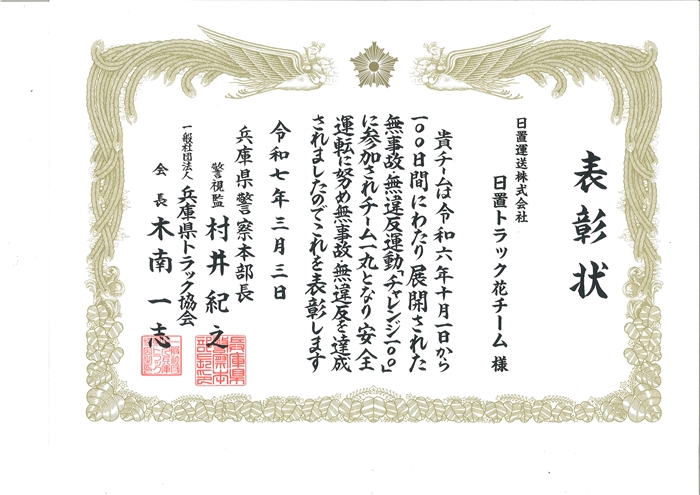 表彰状
日置運送株式会社
日置トラック花チーム 様
貴チームは令和六年十月一日から
一〇〇日間にわたり展開された
無事故・無違反運動「チャレンジ一〇〇」
に参加されチーム一丸となり安全
運転に努め無事故・無違反を達成
されましたのでこれを表彰します
令和七年三月三日
兵庫県警察本部長
警視監 村井紀之
一般社団法人 兵庫県トラック協会
会長 木南一志
兵庫県警察本部長印